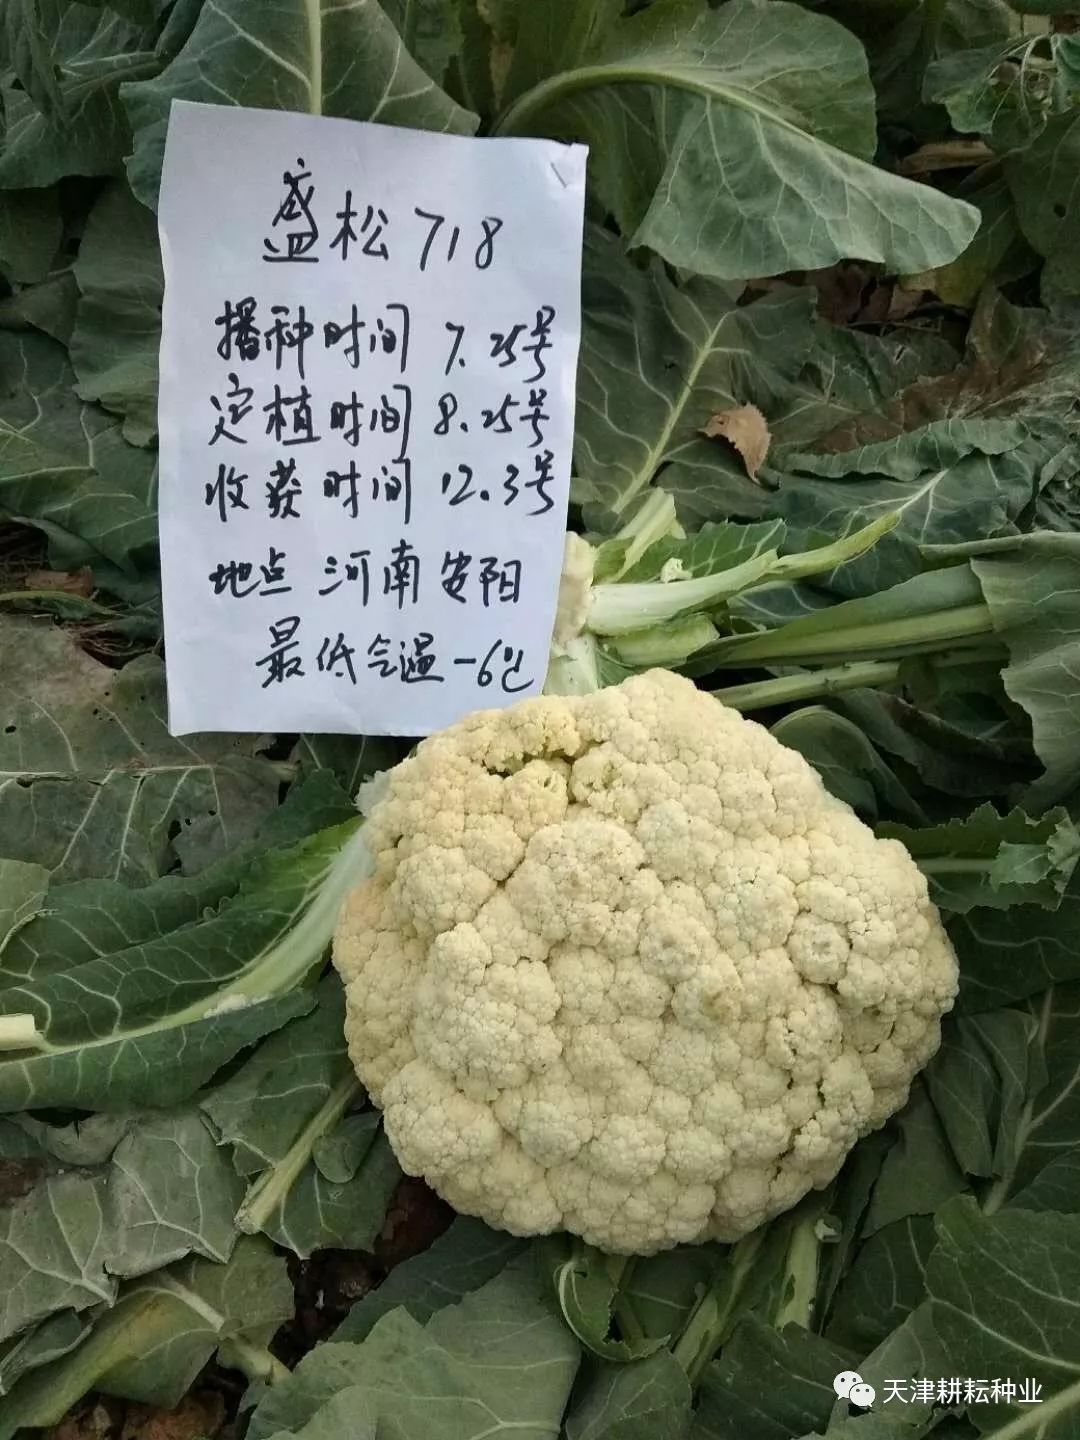 盛松 718
播种时间 7.25号
定植时间 8.25号
收获时间 12.3号
地点 河南安阳
最低气温 -6
天津耕耘种业